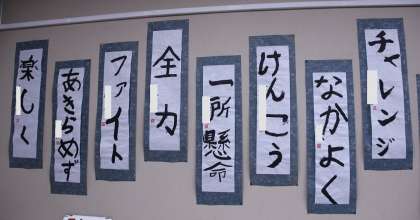 チャレンジ
なかよく
けんこう
一所懸命
全力
ファイト
あきらめず
楽しく